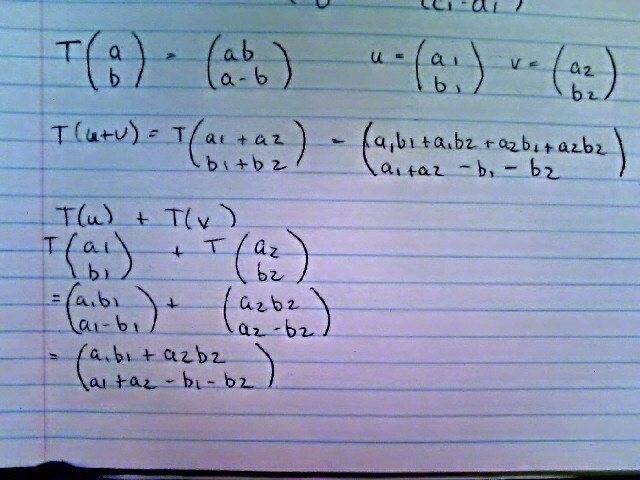 T(a b) = (ab a-b) u = (a1 b1) v = (a2 b2)
T(u+v) = T(a1 + a2 b1 + b2) = (a1b1 + a1b2 + a2b1 + a2b2 a1 + a2 - b1 - b2)
T(u) + T(v)
T(a1 b1) + T(a2 b2)
= (a1b1 a1-b1) + (a2b2 a2-b2)
= (a1b1 + a2b2 a1 + a2 - b1 - b2)